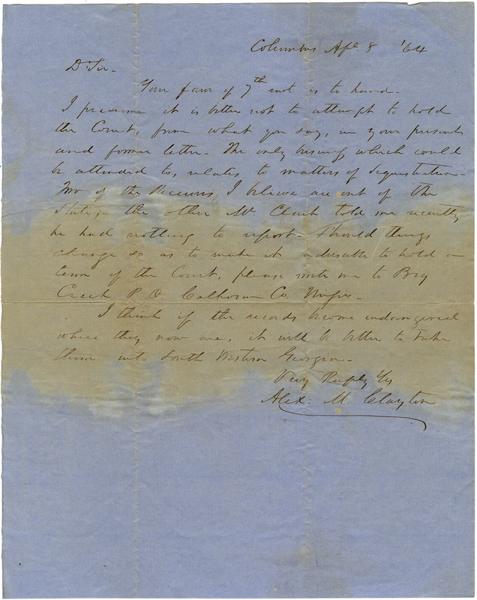 Columbus Apl 8 '64
Dr Sir.
Your favor of 7th inst is to hand.
I presume it is better not to attempt to hold
the Court, from what you say, in your present
and former letter. The only business which could
be attended to, relates to matters of sequestration.
Two of the Receivers, I believe are out of the
State, the other Mr Clark told me recently
he had nothing to report. Should things
change so as to make it advisable to hold a
term of the Court, please write me to Big
Creek P.O. Calhoun Co Missi.
I think if the records become endangered
where they now are, it will be better to take
them into South Western Georgia.
Very Respfly Yrs
Alex. M Clayton